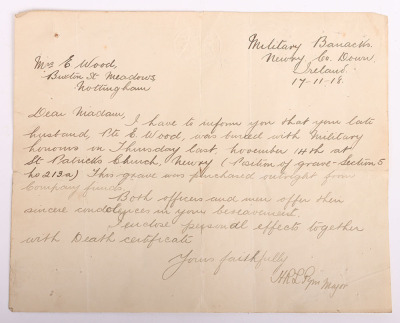 Military Barracks.
Newry Co. Down.
Ireland.
17-11-18.
Mrs E Wood,
Buxton St Meadows,
Nottingham
Dear Madam,
I have to inform you that your late
husband, Pte E. Wood, was buried with Military
honours on Thursday last, November 14th at
St Patricks Church, Newry (Position of grave - Section 5
No 213a) This grave was purchased outright from
Company funds.
Both officers and men offer their
sincere condolences in your bereavement.
I enclose personal effects together
with Death certificate
Yours faithfully
Major